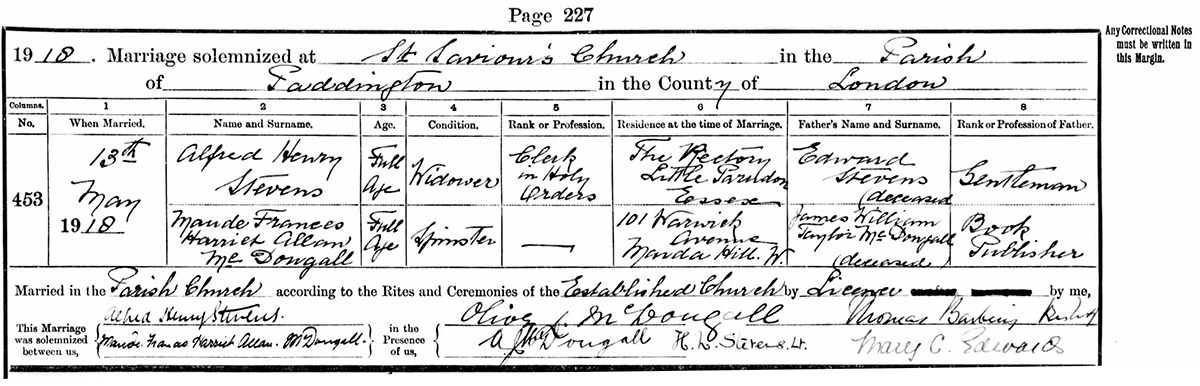 Page 227
Any Correctional Notes
must be written in
this Margin.
1918. Marriage solemnized at St Saviour's Church in the Parish
of Paddington in the County of London
Columns. 1 2 3 4 5 6 7 8
No. When Married. Name and Surname. Age. Condition. Rank or Profession. Residence at the time of Marriage. Father's Name and Surname. Rank or Profession of Father.
453
13th
May
1918
Alfred Henry
Stevens
Full
Age
Widower
Clerk
in Holy
Orders
The Rectory
Little Parndon
Essex
Edward
Stevens
(deceased
Gentleman
Maude Frances
Harriet Allan
McDougall
Full
Age
Spinster
—
101 Warwick
Avenue
Maida Hill. W.
James William
Taylor McDougall
(deceased)
Book
Publisher
Married in the Parish Church according to the Rites and Ceremonies of the Established Church by Licence by me,
This Marriage
was solemnized
between us,
Alfred Henry Stevens.
Maude Frances Harriet Allan McDougall.
in the
Presence
of us,
Olive McDougall
A McDougall H. L. Stevens Lt.
Thomas
Mary C. Edwards